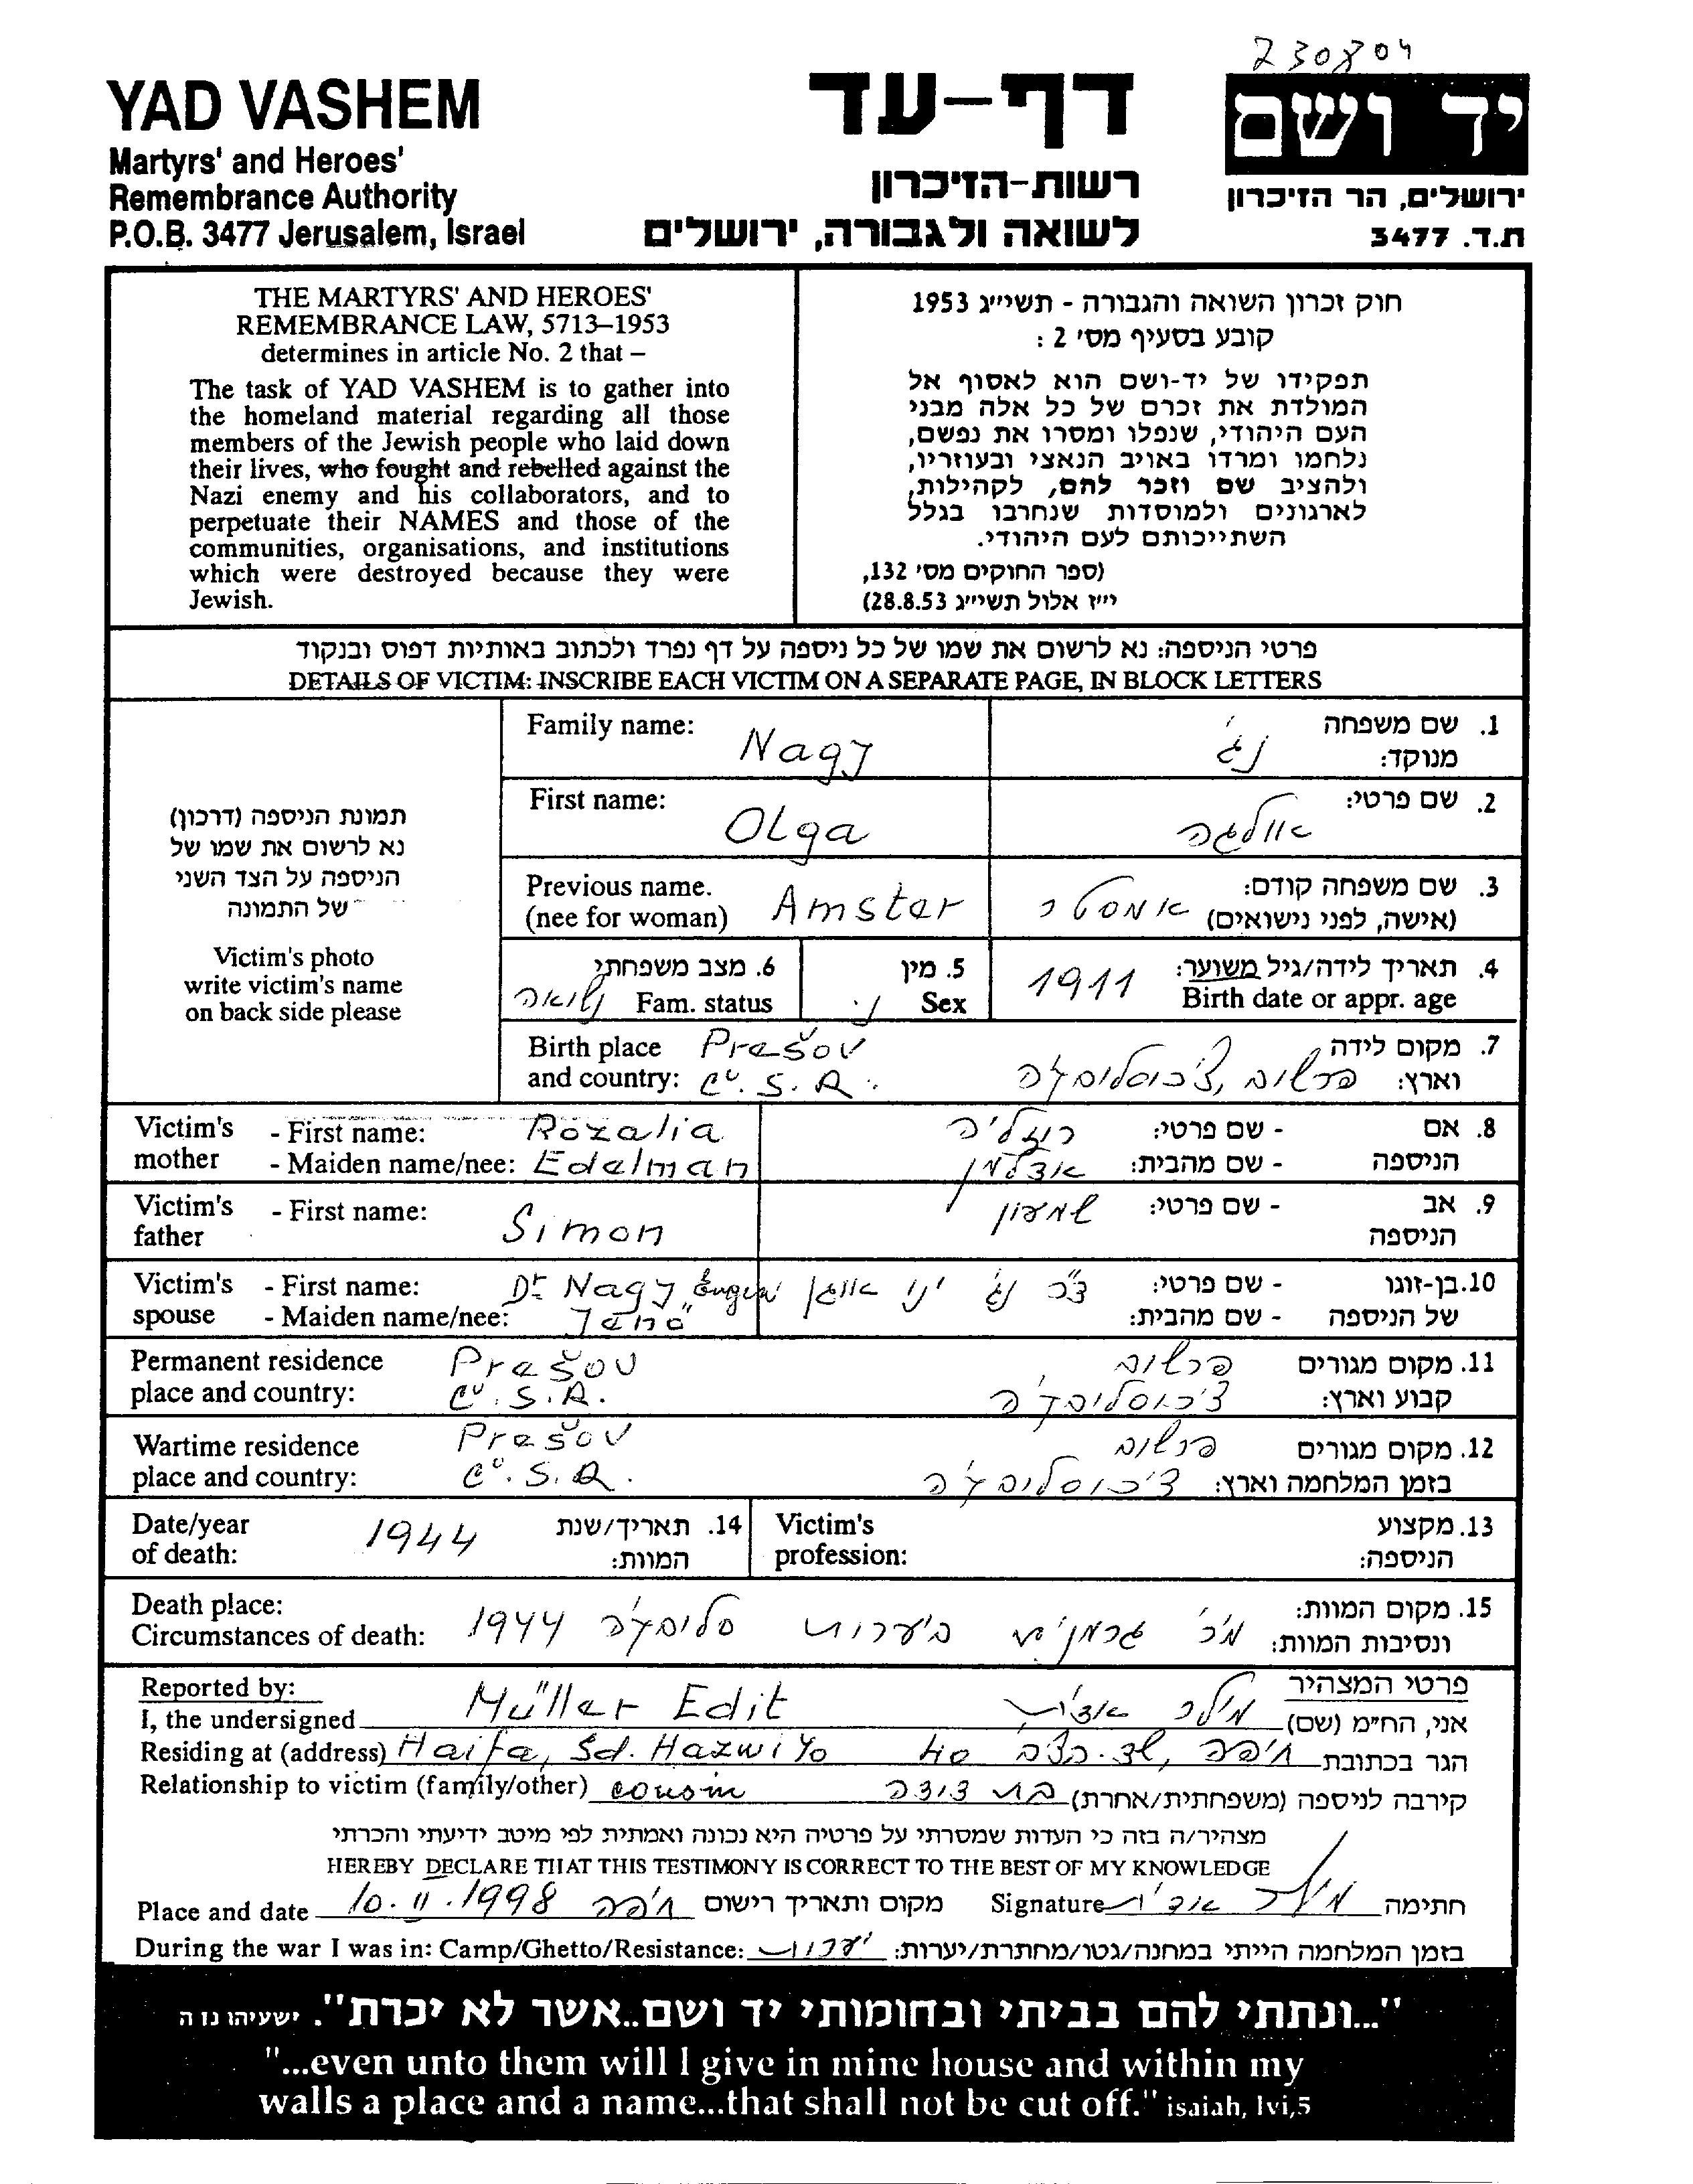 230804
YAD VASHEM
Martyrs' and Heroes'
Remembrance Authority
P.O.B. 3477 Jerusalem, Israel
דף-עד
רשות-הזיכרון
לשואה ולגבורה, ירושלים
יד ושם
ירושלים, הר הזיכרון
ת.ד. 3477
THE MARTYRS' AND HEROES'
REMEMBRANCE LAW, 5713–1953
determines in article No. 2 that –
The task of YAD VASHEM is to gather into
the homeland material regarding all those
members of the Jewish people who laid down
their lives, who fought and rebelled against the
Nazi enemy and his collaborators, and to
perpetuate their NAMES and those of the
communities, organisations, and institutions
which were destroyed because they were
Jewish.
חוק זכרון השואה והגבורה - תשי״ג 1953
קובע בסעיף מס׳ 2 :
תפקידו של יד-ושם הוא לאסוף אל
המולדת את זכרם של כל אלה מבני
העם היהודי, שנפלו ומסרו את נפשם,
נלחמו ומרדו באויב הנאצי ובעוזריו,
ולהציב שם וזכר להם, לקהילות,
לארגונים ולמוסדות שנחרבו בגלל
השתייכותם לעם היהודי.
(ספר החוקים מס׳ 132,
י״ז אלול תשי״ג 28.8.53)
פרטי הניספה: נא לרשום את שמו של כל ניספה על דף נפרד ולכתוב באותיות דפוס ובנקוד
DETAILS OF VICTIM: INSCRIBE EACH VICTIM ON A SEPARATE PAGE, IN BLOCK LETTERS
תמונת הניספה (דרכון)
נא לרשום את שמו של
הניספה על הצד השני
של התמונה
Victim's photo
write victim's name
on back side please
Family name: Nagy נג׳ 1. שם משפחה
מנוקד:
First name: Olga אולגה 2. שם פרטי:
Previous name. Amster אמסטר 3. שם משפחה קודם:
(nee for woman) (אישה, לפני נישואים)
6. מצב משפחתי 5. מין 1911 4. תאריך לידה/גיל משוער:
נשואה Fam. status נ. Sex Birth date or appr. age
Birth place Prešov 7. מקום לידה
and country: Č.S.R. פרשוב, צ׳כוסלובקיה וארץ:
Victim's - First name: Rozalia רוזליה - שם פרטי: 8. אם
mother - Maiden name/nee: Edelman אדלמן - שם מהבית: הניספה
Victim's - First name: Simon שמעון - שם פרטי: 9. אב
father הניספה
Victim's - First name: Dr Nagy Eugen ד״ר נג׳ ינו אוגן - שם פרטי: 10. בן-זוגו
spouse - Maiden name/nee: "Jenö" - שם מהבית: של הניספה
Permanent residence Prešov פרשוב 11. מקום מגורים
place and country: Č.S.R. צ׳כוסלובקיה קבוע וארץ:
Wartime residence Prešov פרשוב 12. מקום מגורים
place and country: Č.S.R. צ׳כוסלובקיה בזמן המלחמה וארץ:
Date/year 1944 14. תאריך/שנת Victim's 13. מקצוע
of death: המוות: profession: הניספה:
Death place: 15. מקום המוות:
Circumstances of death: 1944 סלובקיה ביערות גרמנים ונסיבות המוות:
Reported by: פרטי המצהיר
I, the undersigned Müller Edit מילר אדית אני, הח״מ (שם)
Residing at (address) Haifa, Sd. Hazwi 40 חיפה, שד. הצבי 40 הגר בכתובת
Relationship to victim (family/other) cousin בת דודה קירבה לניספה (משפחתית/אחרת)
מצהיר/ה בזה כי העדות שמסרתי על פרטיה היא נכונה ואמתית לפי מיטב ידיעתי והכרתי
HEREBY DECLARE THAT THIS TESTIMONY IS CORRECT TO THE BEST OF MY KNOWLEDGE
Place and date 10.11.1998 חיפה מקום ותאריך רישום Signature מילר אדית חתימה
During the war I was in: Camp/Ghetto/Resistance: יערות בזמן המלחמה הייתי במחנה/גטו/מחתרת/יערות:
"...ונתתי להם בביתי ובחומותי יד ושם..אשר לא יכרת". ישעיהו נו ה
"...even unto them will I give in mine house and within my
walls a place and a name...that shall not be cut off." isaiah, lvi,5